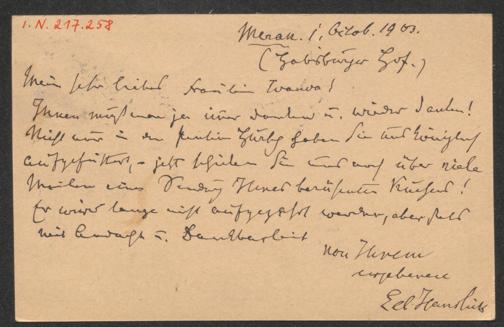 I. N. 217.258
Meran. 1. Octob. 1903.
(Habsburger Hof.)
Mein sehr liebes Fräulein
Ihnen muß man ja immer danken u. wieder danken!
Nicht nur in der haben Sie uns königlich
aufgefüttert, – jetzt schicken Sie uns noch über viele
Meilen eine Sendung Ihres berühmten Kuchens!
Er wird lange nicht aufgezehrt werden, aber stets
mit Andacht u. Dankbarkeit
von Ihrem
ergebenen
Ed Hanslick